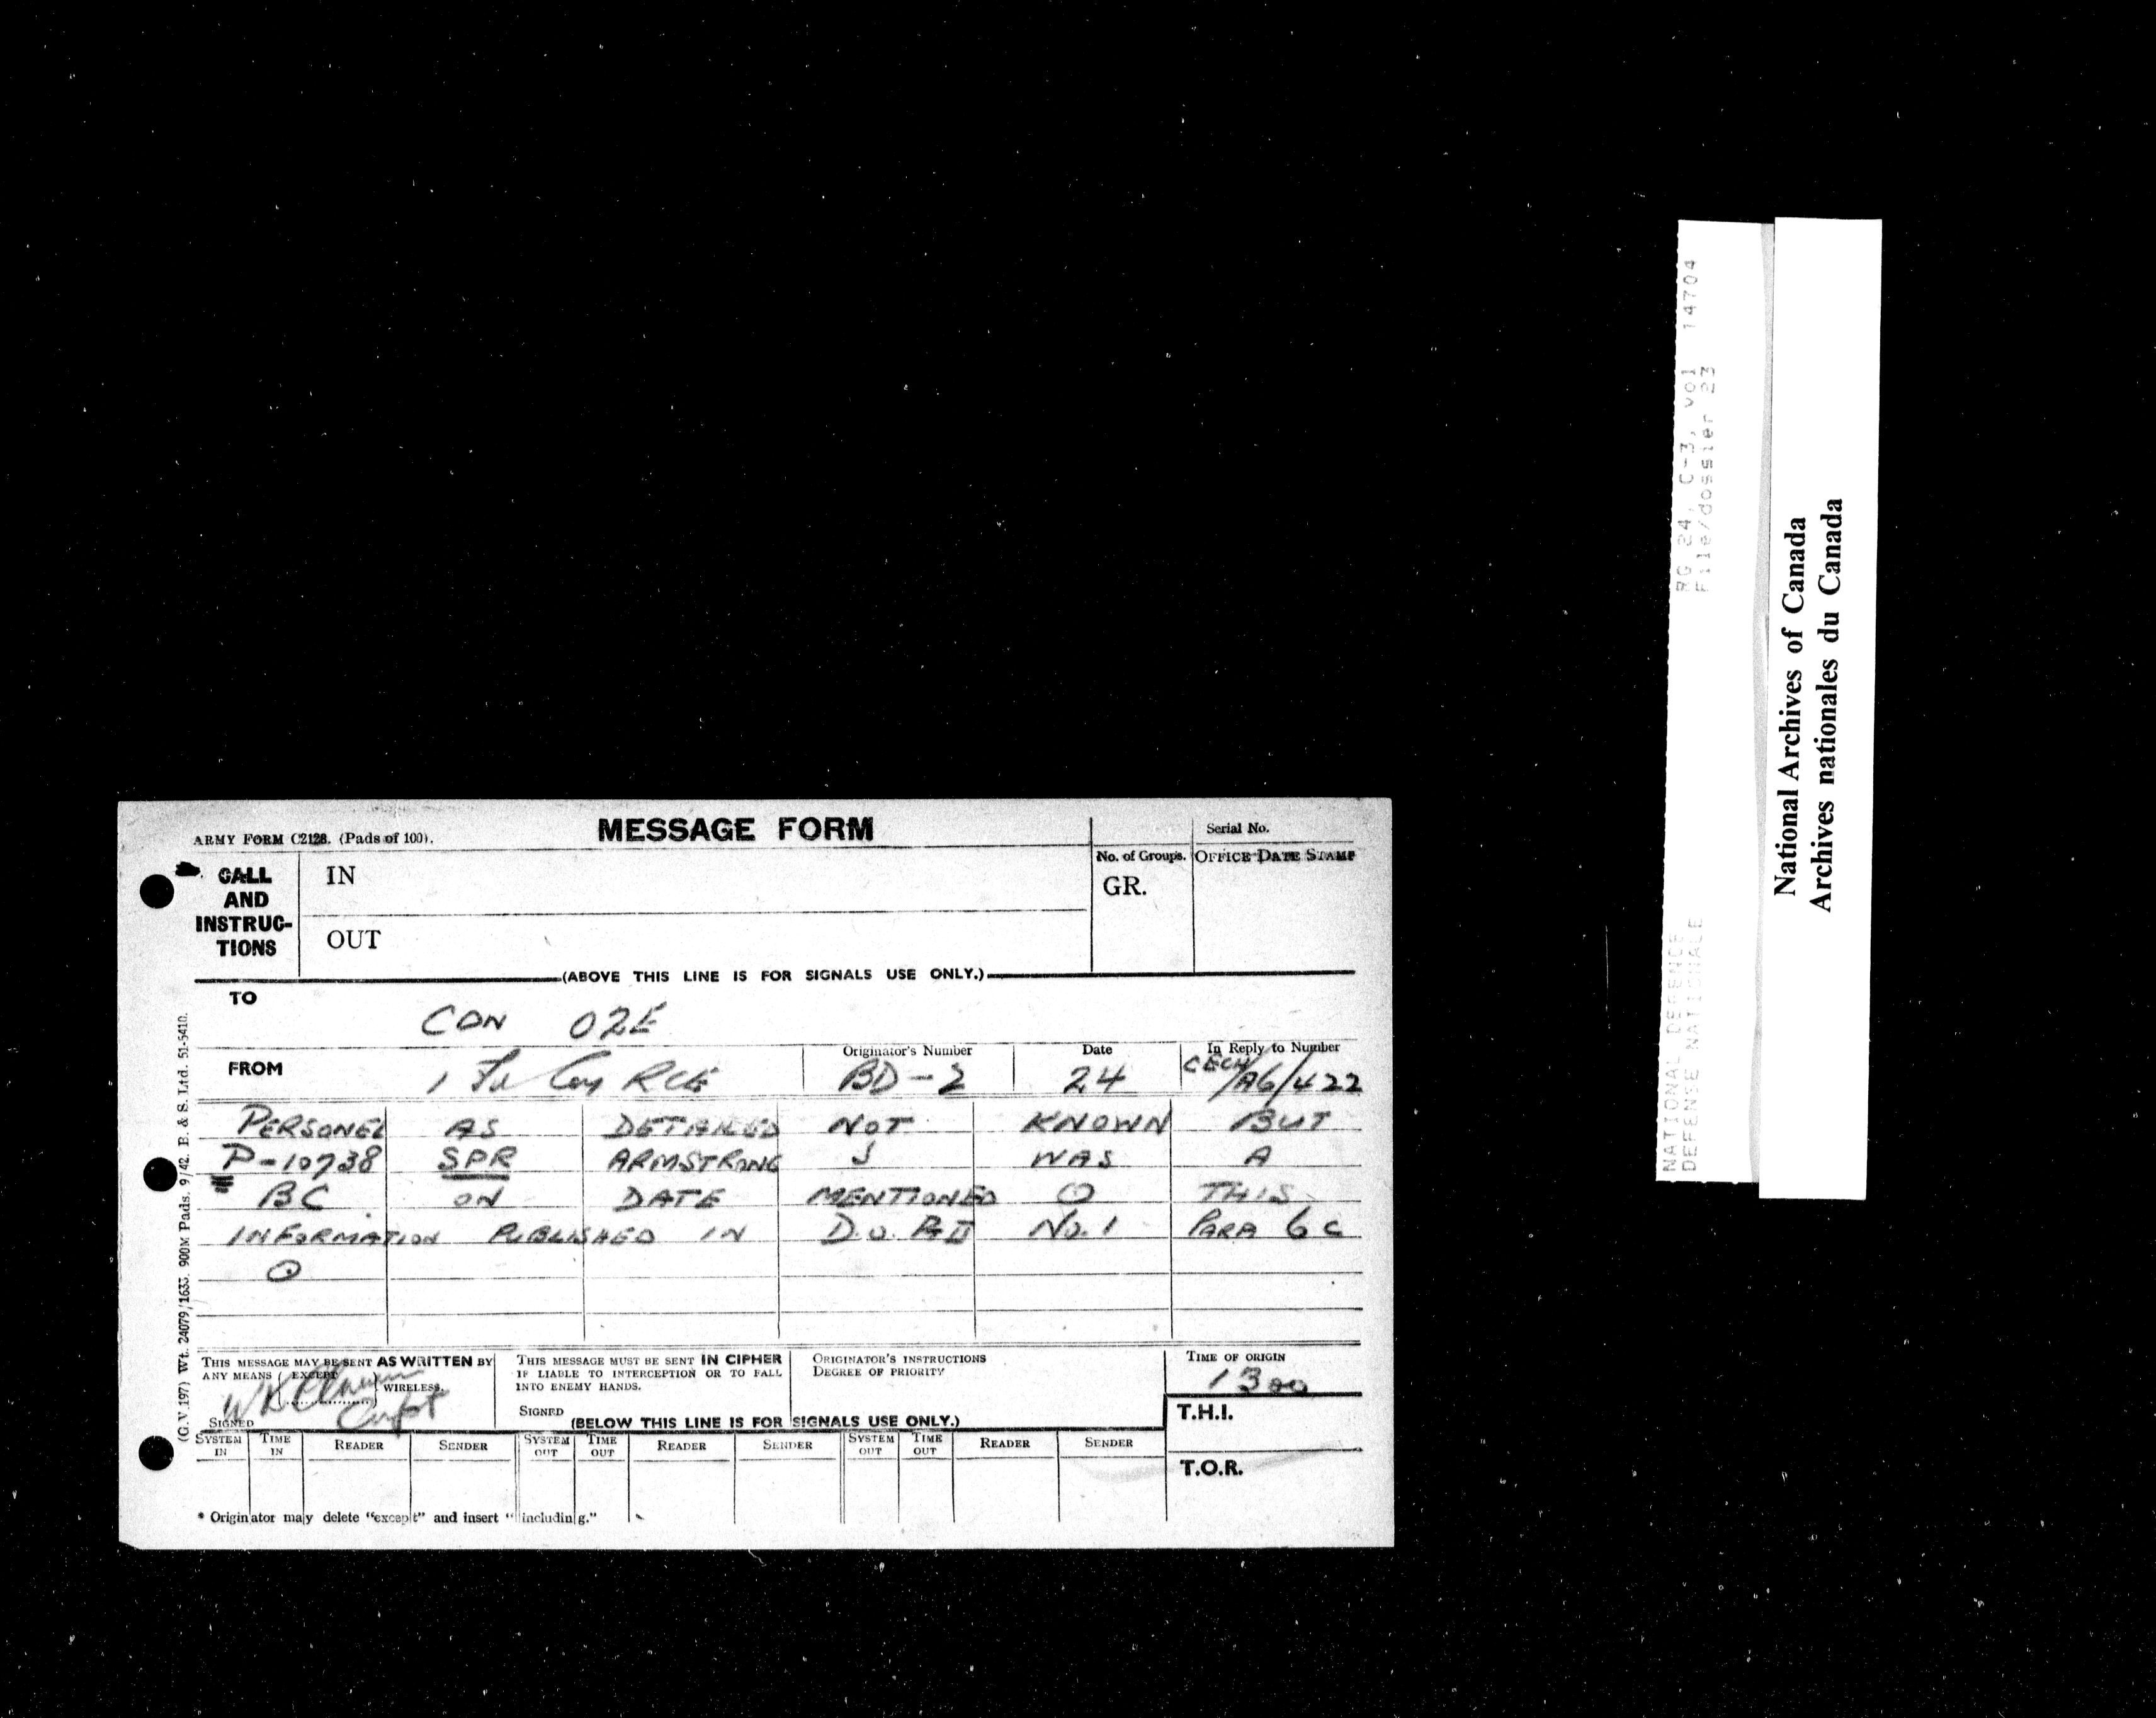 ARMY FORM C2128. (Pads of 100).
MESSAGE FORM
Serial No.
CALL AND INSTRUC-TIONS
IN
No. of Groups.
OFFICE DATE STAMP
GR.
OUT
(ABOVE THIS LINE IS FOR SIGNALS USE ONLY.)
TO
CDN 02E
FROM
1 Fd Coy RCE
Originator's Number
BD-2
Date
24
In Reply to Number
CECH/AG/422
PERSONEL AS DETAILED NOT KNOWN BUT
P-10738 SPR ARMSTRONG J WAS A
BC ON DATE MENTIONED O THIS
INFORMATION PUBLISHED IN D.O. Pt II No. 1 PARA 6 C
O
THIS MESSAGE MAY BE SENT AS WRITTEN BY
ANY MEANS (EXCEPT) WIRELESS.
Capt
SIGNED
THIS MESSAGE MUST BE SENT IN CIPHER
IF LIABLE TO INTERCEPTION OR TO FALL
INTO ENEMY HANDS.
SIGNED
ORIGINATOR'S INSTRUCTIONS
DEGREE OF PRIORITY
TIME OF ORIGIN
1300
T.H.I.
(BELOW THIS LINE IS FOR SIGNALS USE ONLY.)
SYSTEM IN TIME IN READER SENDER SYSTEM OUT TIME OUT READER SENDER SYSTEM OUT TIME OUT READER SENDER
T.O.R.
* Originator may delete "except" and insert "including."
(G.V.197) Wt. 24079/1633. 900M Pads. 9/42. E. & S. Ltd. 51-5410.
NATIONAL DEFENCE RG 24, C-3, vol 14704
DEFENSE NATIONALE File/dossier 23
National Archives of Canada
Archives nationales du Canada